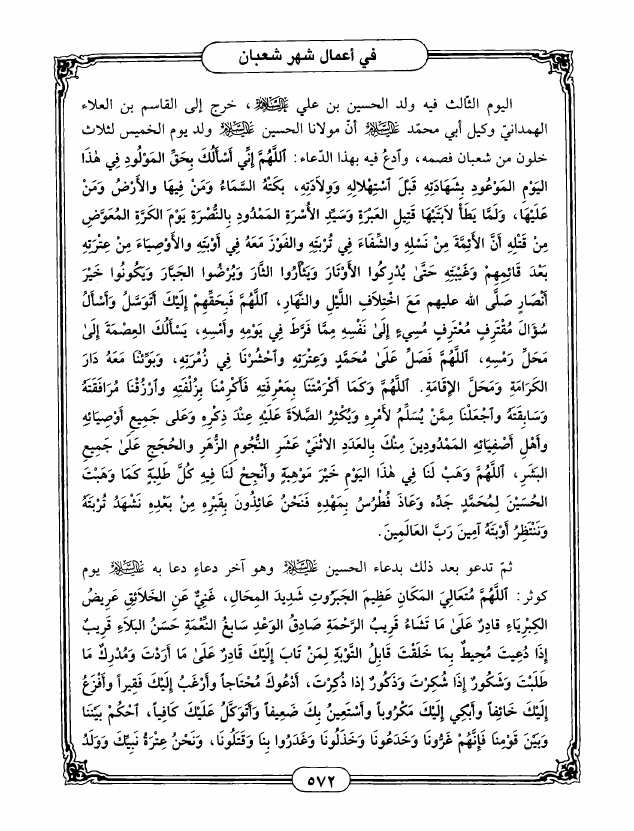 في أعمال شهر شعبان
اليوم الثّالث فيه ولد الحسين بن علي عليه السلام، خرج إلى القاسم بن العلاء
الهمدانيّ وكيل أبي محمّد عليه السلام أنّ مولانا الحسين عليه السلام ولد يوم الخميس لثلاث
خلون من شعبان فصمه، وٱدعُ فيه بهذا الدّعاء: ٱللَّهُمَّ إِنِّي أَسْأَلُكَ بِحَقِّ المَوْلُودِ فِي هٰذَا
اليَوْمِ المَوْعُودِ بِشَهَادَتِهِ قَبْلَ ٱسْتِهْلَالِهِ وَوِلَادَتِهِ، بَكَتْهُ السَّمَاءُ وَمَنْ فِيهَا والأَرْضُ وَمَنْ
عَلَيْهَا، وَلَمَّا يَطَأْ لَابَتَيْهَا قَتِيلِ العَبْرَةِ وَسَيِّدِ الأُسْرَةِ المَمْدُودِ بِالنُّصْرَةِ يَوْمَ الكَرَّةِ المُعَوَّضِ
مِنْ قَتْلِهِ أَنَّ الأَئِمَّةَ مِنْ نَسْلِهِ والشِّفَاءَ فِي تُرْبَتِهِ والفَوْزَ مَعَهُ فِي أَوْبَتِهِ والأَوْصِيَاءَ مِنْ عِتْرَتِهِ
بَعْدَ قَائِمِهِمْ وَغَيْبَتِهِ حَتَّىٰ يُدْرِكُوا الأَوْتَارَ وَيَثْأَرُوا الثَّارَ وَيُرْضُوا الجَبَّارَ وَيَكُونُوا خَيْرَ
أَنْصَارٍ صَلَّى الله عليهم مَعَ ٱخْتِلَافِ اللَّيْلِ والنَّهَارِ، ٱللَّهُمَّ فَبِحَقِّهِمْ إِلَيْكَ أَتَوَسَّلُ وَأَسْأَلُ
سُؤَالَ مُقْتَرِفٍ مُعْتَرِفٍ مُسِيءٍ إِلَىٰ نَفْسِهِ مِمَّا فَرَّطَ فِي يَوْمِهِ وأَمْسِهِ، يَسْأَلُكَ العِصْمَةَ إِلَىٰ
مَحَلِّ رَمْسِهِ، ٱللَّهُمَّ فَصَلِّ عَلَىٰ مُحَمَّدٍ وَعِتْرَتِهِ وٱحْشُرْنَا فِي زُمْرَتِهِ، وَبَوِّئْنَا مَعَهُ دَارَ
الكَرَامَةِ وَمَحَلَّ الإِقَامَةِ. ٱللَّهُمَّ وَكَمَا أَكْرَمْتَنَا بِمَعْرِفَتِهِ فَأَكْرِمْنَا بِزُلْفَتِهِ وٱرْزُقْنَا مُرَافَقَتَهُ
وَسَابِقَتَهُ وٱجْعَلْنَا مِمَّنْ يُسَلِّمُ لأَمْرِهِ وَيُكْثِرُ الصَّلَاةَ عَلَيْهِ عِنْدَ ذِكْرِهِ وَعَلى جَمِيعِ أَوْصِيَائِهِ
وَأَهْلِ أَصْفِيَائِهِ المَمْدُودِينَ مِنْكَ بِالعَدَدِ الاثْنَيْ عَشَرَ النُّجُومِ الزُّهَرِ والحُجَجِ عَلَىٰ جَمِيعِ
البَشَرِ، ٱللَّهُمَّ وَهَبْ لَنَا فِي هٰذَا اليَوْمِ خَيْرَ مَوْهِبَةٍ وأَنْجِحْ لَنَا فِيهِ كُلَّ طَلِبَةٍ كَمَا وَهَبْتَ
الحُسَيْنَ لِمُحَمَّدٍ جَدِّهِ وَعَاذَ فُطْرُسُ بِمَهْدِهِ فَنَحْنُ عَائِذُونَ بِقَبْرِهِ مِنْ بَعْدِهِ نَشْهَدُ تُرْبَتَهُ
وَنَنْتَظِرُ أَوْبَتَهُ آمِينَ رَبَّ العَالَمِينَ.
ثمّ تدعو بعد ذلك بدعاء الحسين عليه السلام وهو آخر دعاءٍ دعا به عليه السلام يوم
كوثر: ٱللَّهُمَّ مُتَعَالِيَ المَكَانِ عَظِيمَ الجَبَرُوتِ شَدِيدَ المِحَالِ، غَنِيٌّ عَنِ الخَلَائِقِ عَرِيضُ
الكِبْرِيَاءِ قَادِرٌ عَلَىٰ مَا تَشَاءُ قَرِيبُ الرَّحْمَةِ صَادِقُ الوَعْدِ سَابِغُ النِّعْمَةِ حَسَنُ البَلَاءِ قَرِيبٌ
إِذَا دُعِيتَ مُحِيطٌ بِمَا خَلَقْتَ قَابِلُ التَّوْبَةِ لِمَنْ تَابَ إِلَيْكَ قَادِرٌ عَلَىٰ مَا أَرَدْتَ وَمُدْرِكٌ مَا
طَلَبْتَ وَشَكُورٌ إِذَا شُكِرْتَ وَذَكُورٌ إذا ذُكِرْتَ، أَدْعُوكَ مُحْتَاجاً وأَرْغَبُ إِلَيْكَ فَقِيراً وأَفْزَعُ
إِلَيْكَ خَائِفاً وأَبْكِي إِلَيْكَ مَكْرُوباً وأَسْتَعِينُ بِكَ ضَعِيفاً وأَتَوَكَّلُ عَلَيْكَ كَافِياً، ٱحْكُمْ بَيْنَنَا
وَبَيْنَ قَوْمِنَا فَإِنَّهُمْ غَرُّونَا وَخَدَعُونَا وَخَذَلُونَا وَغَدَرُوا بِنَا وَقَتَلُونَا، وَنَحْنُ عِتْرَةُ نَبِيِّكَ وَوَلَدُ
٥٧٢